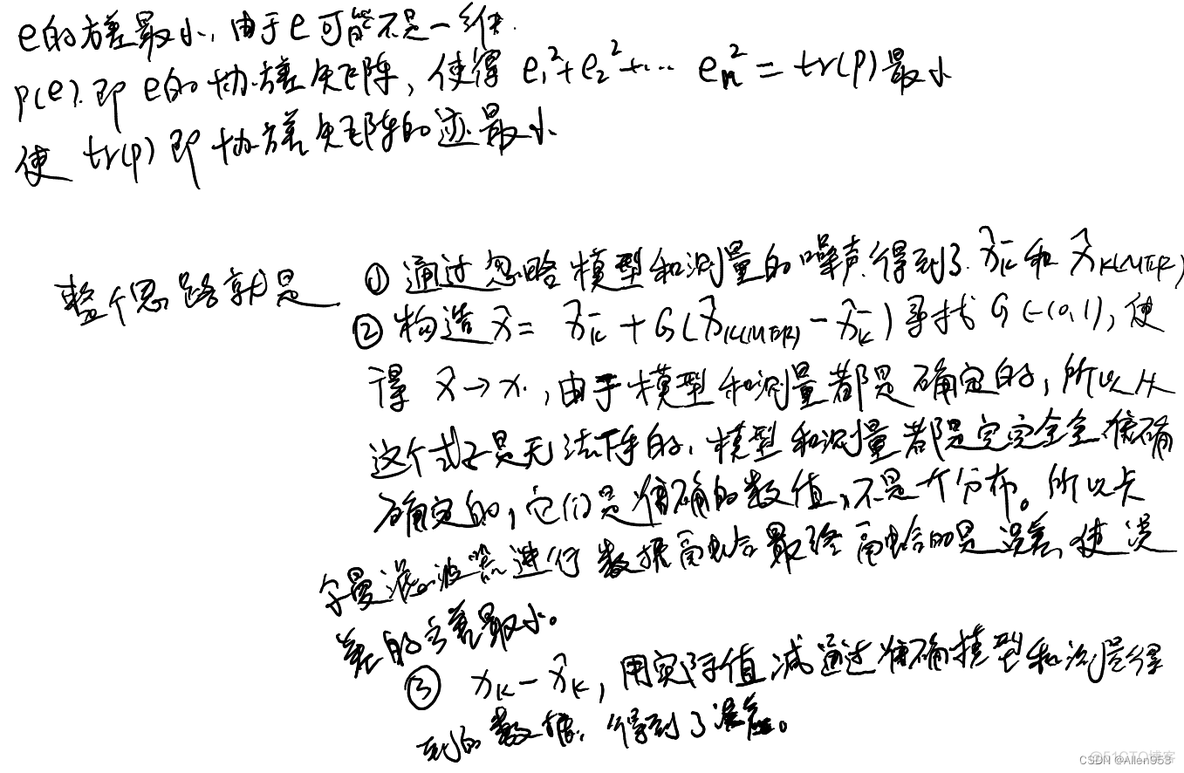 e的方差最小，由于e可能不是一维.
P(e).即 e的协方差矩阵，使得 e₁²+e₂²+… eₙ² = tr(P)最小
使 tr(P) 即协方差矩阵的迹最小
整个思路就是 ① 通过忽略模型和测量的噪声.得到了 x̂ₖ⁻ 和 x̂ₖ(MER)
② 构造 x̂ = x̂ₖ⁻ + G(x̂ₖ(MER) − x̂ₖ⁻) 寻找 G (-(0,1)，使
得 x̂→x，由于模型和测量都是确定的，所以从
这个式子是无法下手的，模型和测量都是完完全全准确
确定的，它们是准确的数值，不是个分布。所以卡
尔曼滤波器进行数据融合最终融合的是误差，使误
差的方差最小。
③ xₖ − x̂ₖ，用实际值减通过准确模型和测量得
到的数据，得到了误差。
@51CTO博客
CSDN @Allen953